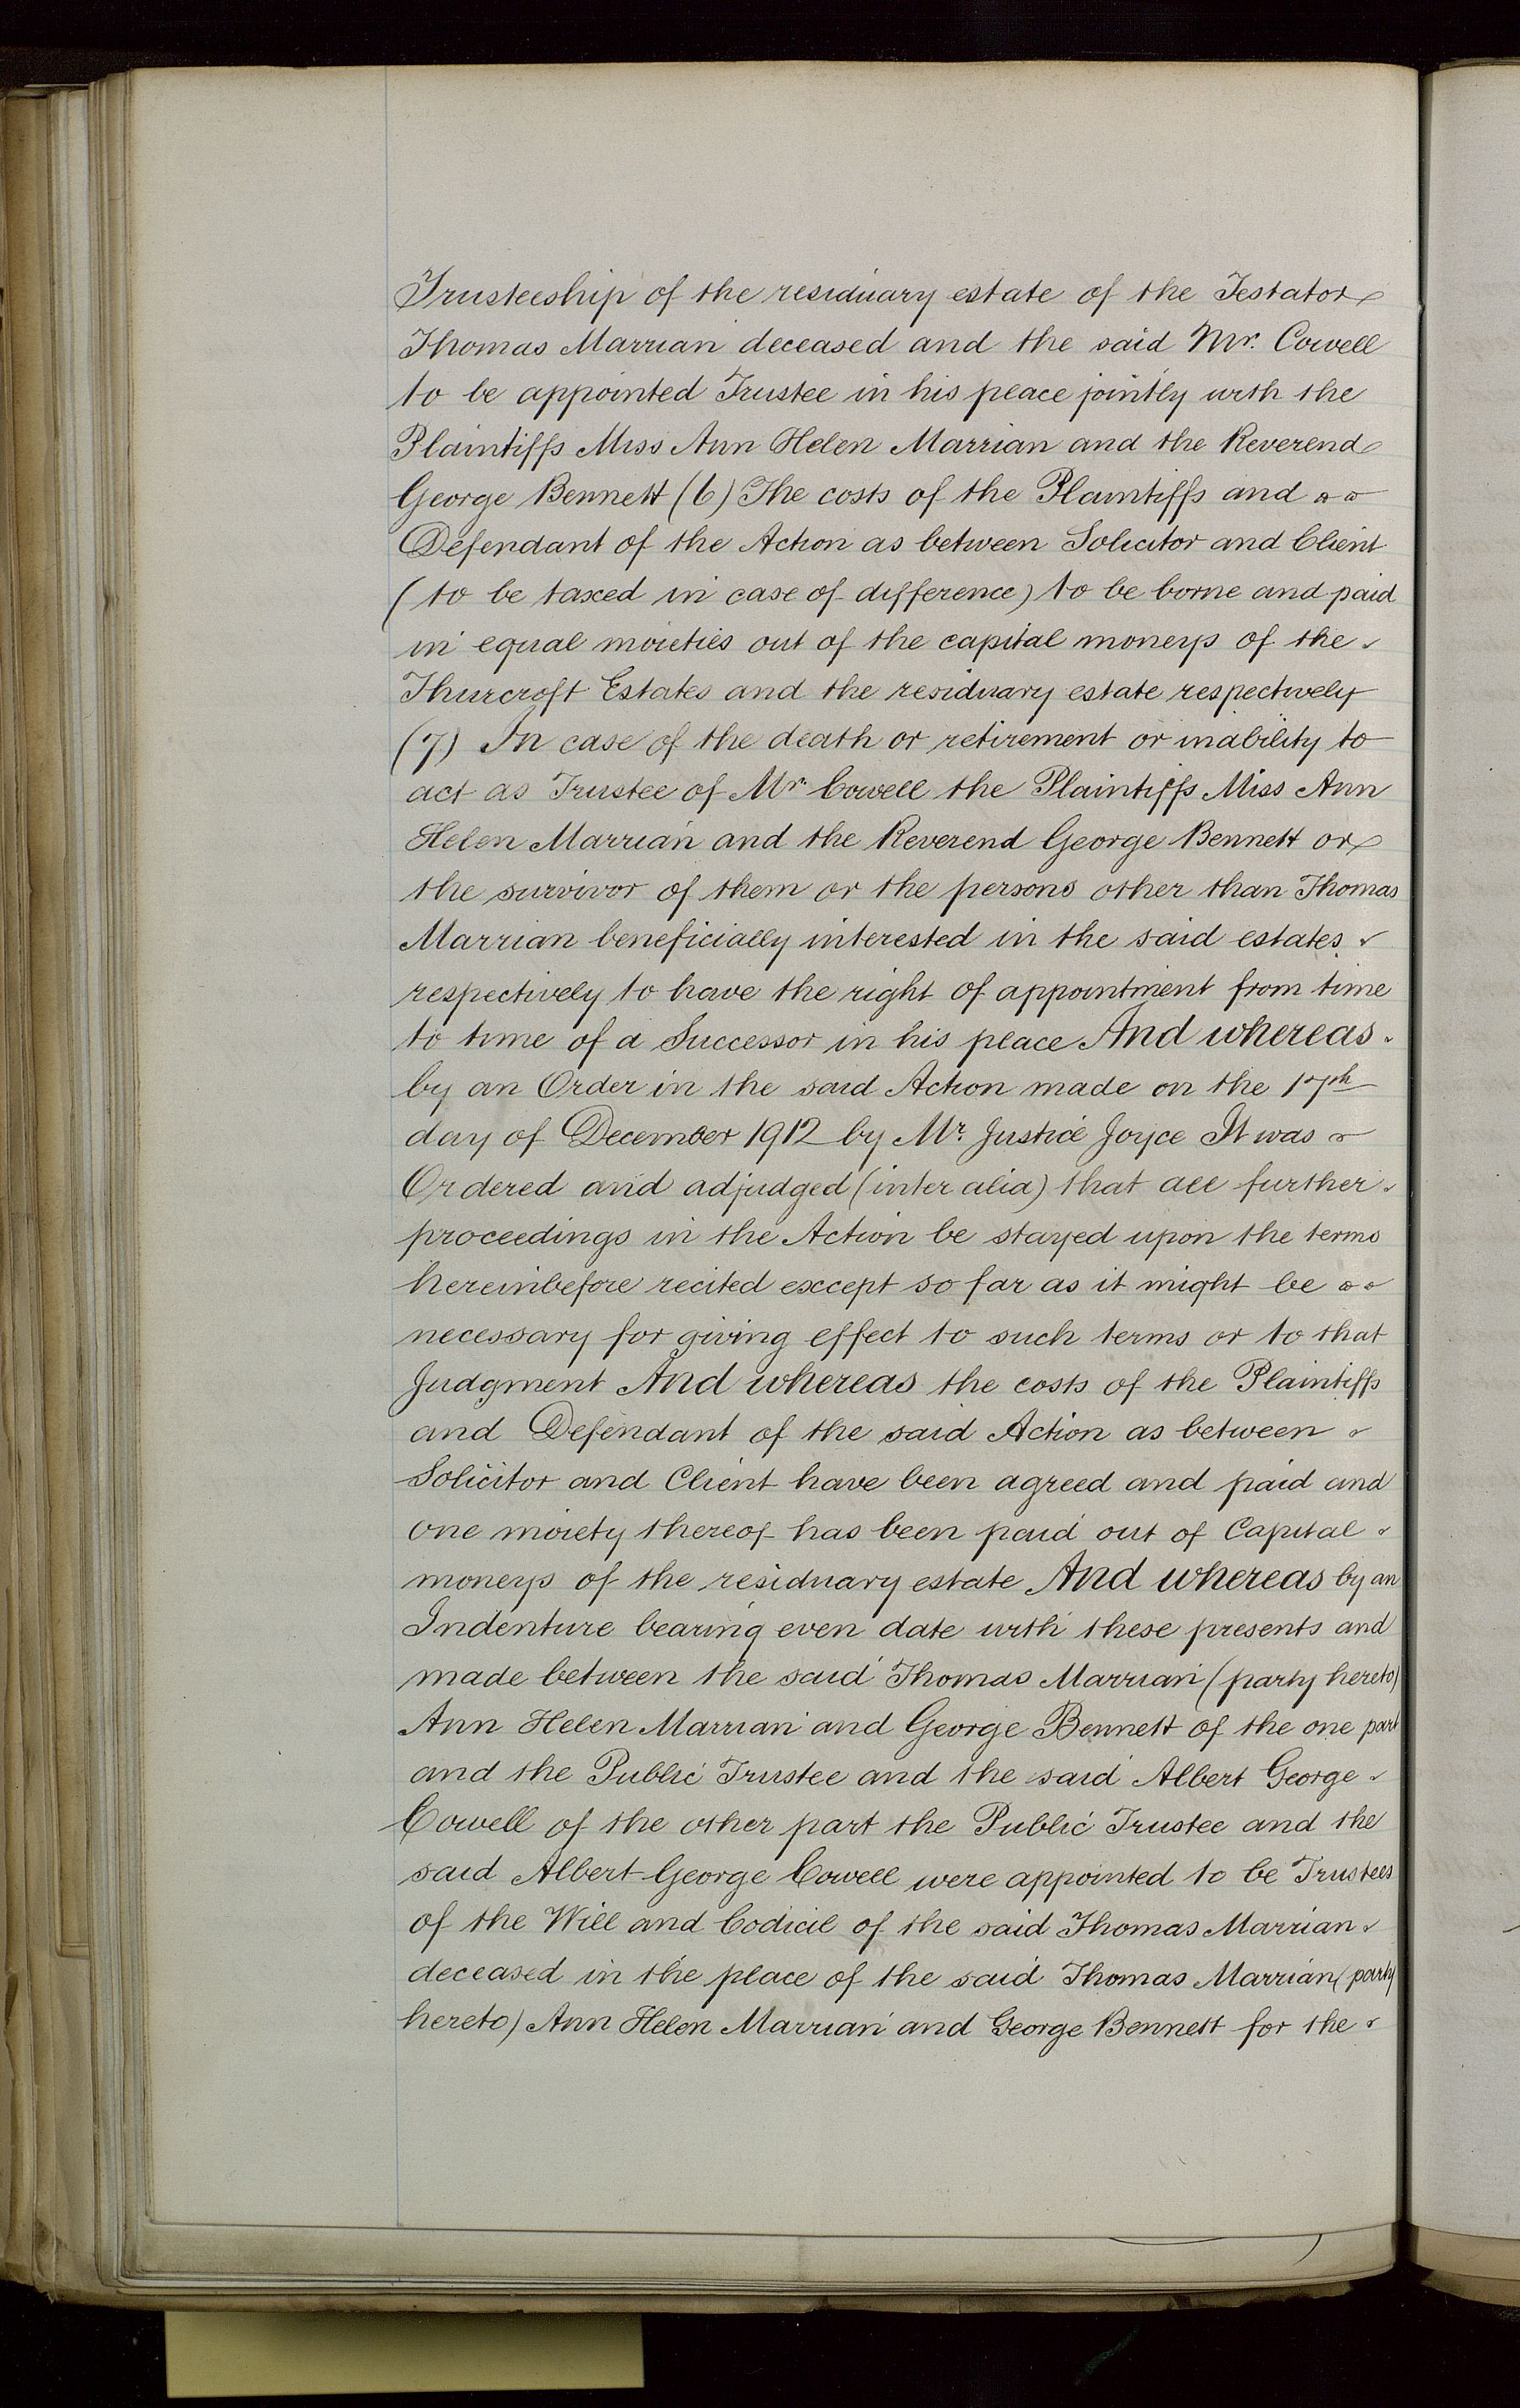 Trusteeship of the residuary estate of the Testator
Thomas Marrian deceased and the said Mr. Cowell
to be appointed Trustee in his place jointly with the
Plaintiffs Miss Ann Helen Marrian and the Reverend
George Bennett (6) The costs of the Plaintiffs and
Defendant of the Action as between Solicitor and Client
(to be taxed in case of difference) to be borne and paid
in equal moieties out of the capital moneys of the
Thurcroft Estates and the residuary estate respectively
(7) In case of the death or retirement or inability to
act as Trustee of Mr. Cowell the Plaintiffs Miss Ann
Helen Marrian and the Reverend George Bennett or
the survivor of them or the persons other than Thomas
Marrian beneficially interested in the said estates
respectively to have the right of appointment from time
to time of a Successor in his place And whereas
by an Order in the said Action made on the 17th
day of December 1912 by Mr. Justice Joyce It was
Ordered and adjudged (inter alia) that all further
proceedings in the Action be stayed upon the terms
hereinbefore recited except so far as it might be
necessary for giving effect to such terms or to that
Judgment And whereas the costs of the Plaintiffs
and Defendant of the said Action as between
Solicitor and Client have been agreed and paid and
one moiety thereof has been paid out of Capital
moneys of the residuary estate And whereas by an
Indenture bearing even date with these presents and
made between the said Thomas Marrian (party hereto)
Ann Helen Marrian and George Bennett of the one part
and the Public Trustee and the said Albert George
Cowell of the other part the Public Trustee and the
said Albert George Cowell were appointed to be Trustees
of the Will and Codicil of the said Thomas Marrian
deceased in the place of the said Thomas Marrian (party
hereto) Ann Helen Marrian and George Bennett for the